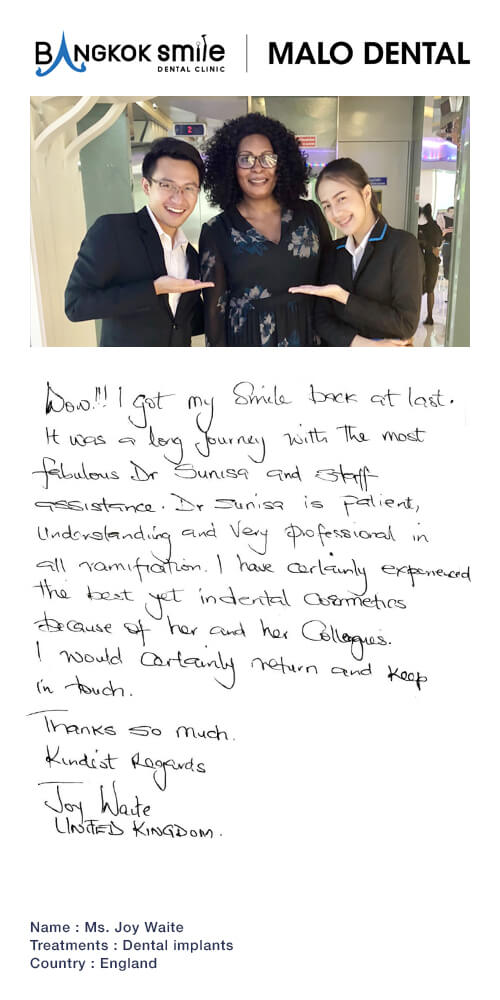 BANGKOK smile
DENTAL CLINIC
MALO DENTAL
2
Wow!!! I got my Smile back at last.
It was a long Journey with The most
fabulous Dr Sunisa and staff
assistance. Dr Sunisa is Patient,
Understanding and Very professional in
all ramifiation. I have certainly experienced
the best yet in dental Cosmetics
because of her and her Collegues.
I would Certainly return and keep
in touch.
Thanks so much.
Kindist Regards
Joy Waite
UNITED KINGDOM.
Name : Ms. Joy Waite
Treatments : Dental implants
Country : England